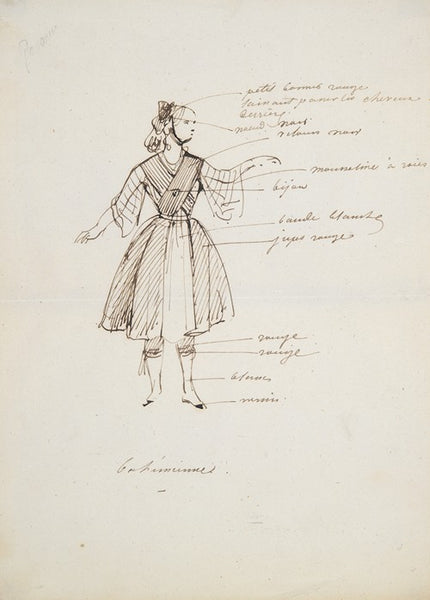 petit bonnet rouge
laissant passer les cheveux
derrière
nœud noir
velours noir
mousseline à raies
bijou
bande blanche
jupe rouge
rouge
rouge
blanc
vernis.
bohémiennes.